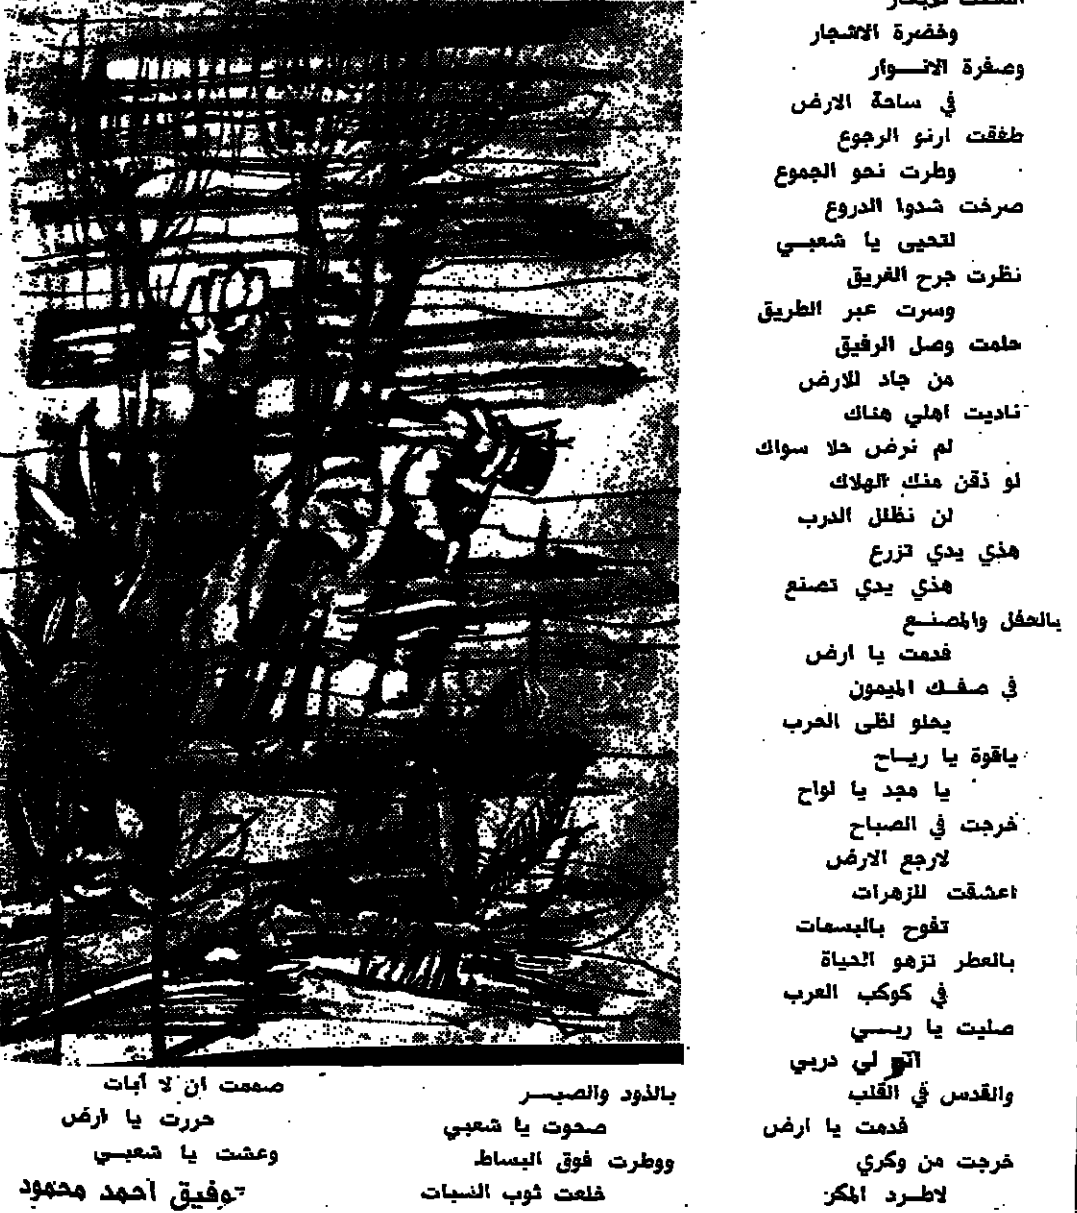 وخضرة الاشجار
وصفرة الانــوار
في ساحة الارض
طفقت ارنو الرجوع
وطرت نحو الجموع
صرخت شدوا الدروع
لتحيى يا شعبــي
نظرت جرح الغريق
وسرت عبر الطريق
حلمت وصل الرفيق
من جاد للارض
ناديت اهلي هناك
لم نرض حلا سواك
لو ذقن منك الهلاك
لن نظلل الدرب
هذي يدي تزرع
هذي يدي تصنع
بالحقل والمصنــع
قدمت يا ارض
في صفــك الميمون
يحلو لظى الحرب
ياقوة يا ريــاح
يا مجد يا لواح
خرجت في الصباح
لارجع الارض
اعشقت للزهرات
تفوح بالبسمات
بالعطر تزهو الحياة
في كوكب العرب
صليت يا ربــي
لي دربي
والقدس في القلب
قدمت يا ارض
خرجت من وكري
لاطــرد المكر
بالذود والصبــر
صحوت يا شعبي
ووطرت فوق البساط
خلعت ثوب السبات
صممت ان لا أبات
حررت يا ارض
وعشت يا شعبــي
توفيق احمد محمود